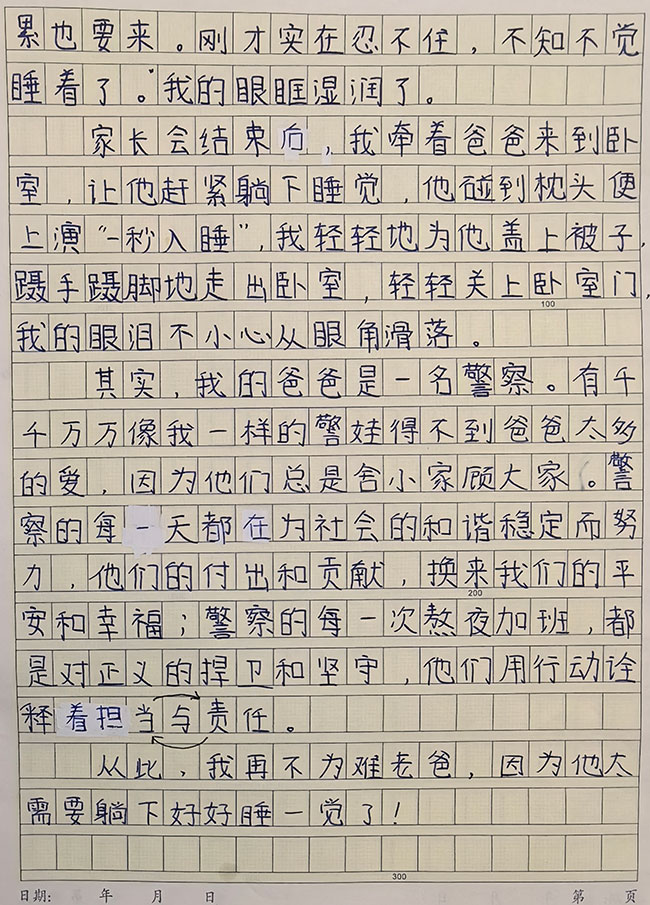 累也要来。刚才实在忍不住，不知不觉
睡着了。我的眼眶湿润了。
家长会结束后，我牵着爸爸来到卧
室，让他赶紧躺下睡觉，他碰到枕头便
上演“一秒入睡”，我轻轻地为他盖上被子，
蹑手蹑脚地走出卧室，轻轻关上卧室门，
100
我的眼泪不小心从眼角滑落。
其实，我的爸爸是一名警察。有千
千万万像我一样的警娃得不到爸爸太多
的爱，因为他们总是舍小家顾大家。警
察的每一天都在为社会的和谐稳定而努
力，他们的付出和贡献，换来我们的平
200
安和幸福；警察的每一次熬夜加班，都
是对正义的捍卫和坚守，他们用行动诠
释着担当与责任。
从此，我再不为难老爸，因为他太
需要躺下好好睡一觉了！
300
日期： 年 月 日 第 页